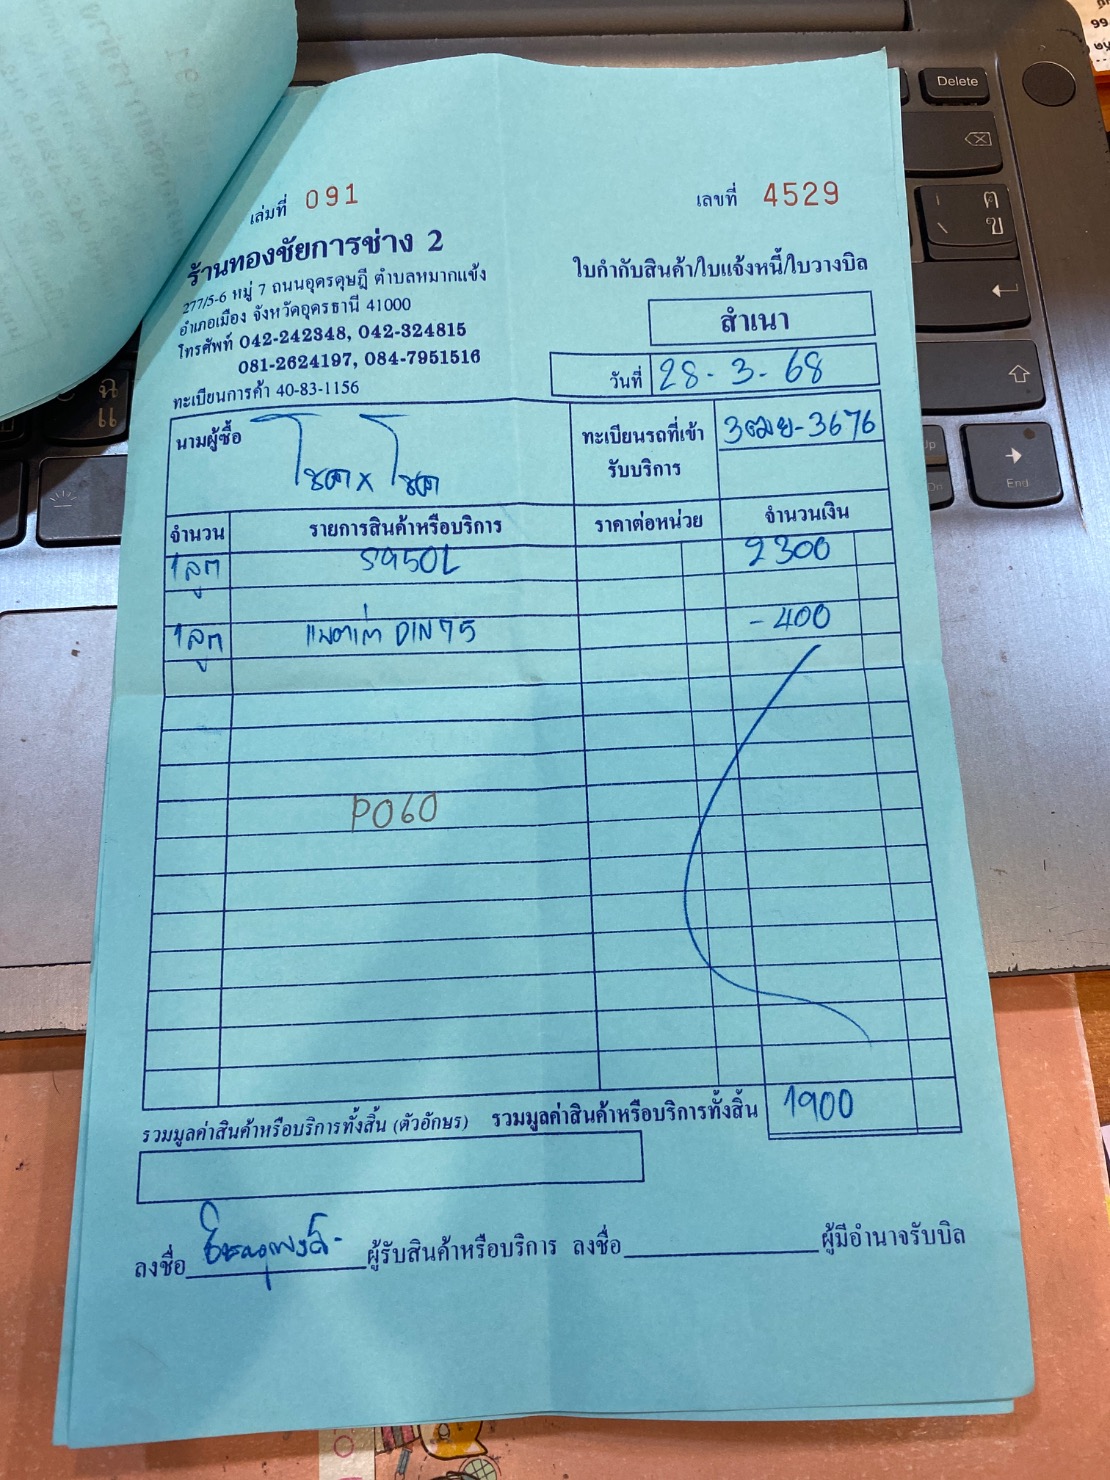 เล่มที่ 091
เลขที่ 4529
ร้านทองชัยการช่าง 2
277/5-6 หมู่ 7 ถนนอุดรดุษฎี ตำบลหมากแข้ง
อำเภอเมือง จังหวัดอุดรธานี 41000
โทรศัพท์ 042-242348, 042-324815
081-2624197, 084-7951516
ทะเบียนการค้า 40-83-1156
ใบกำกับสินค้า/ใบแจ้งหนี้/ใบวางบิล
สำเนา
วันที่ 28-3-68
นามผู้ซื้อ โชค x โชค
ทะเบียนรถที่เข้ารับบริการ -3676
จำนวน รายการสินค้าหรือบริการ ราคาต่อหน่วย จำนวนเงิน
1ลูก S95DL 2300
1ลูก แบตเก่า DIN75 -400
PO60
รวมมูลค่าสินค้าหรือบริการทั้งสิ้น (ตัวอักษร) รวมมูลค่าสินค้าหรือบริการทั้งสิ้น 1900
ลงชื่อ ผู้รับสินค้าหรือบริการ ลงชื่อ ผู้มีอำนาจรับบิล
Delete
End